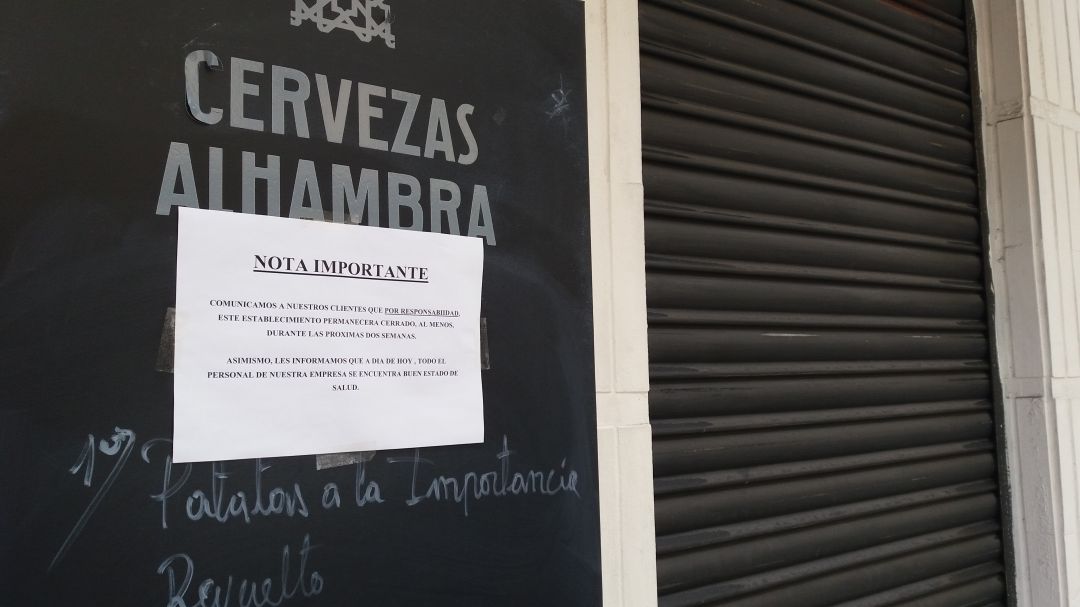 CERVEZAS
ALHAMBRA
NOTA IMPORTANTE
COMUNICAMOS A NUESTROS CLIENTES QUE POR RESPONSABIIDAD,
ESTE ESTABLECIMIENTO PERMANECERA CERRADO, AL MENOS,
DURANTE LAS PROXIMAS DOS SEMANAS.
ASIMISMO, LES INFORMAMOS QUE A DIA DE HOY , TODO EL
PERSONAL DE NUESTRA EMPRESA SE ENCUENTRA BUEN ESTADO DE
SALUD.
1os) Patatas a la Importancia
Revuelto